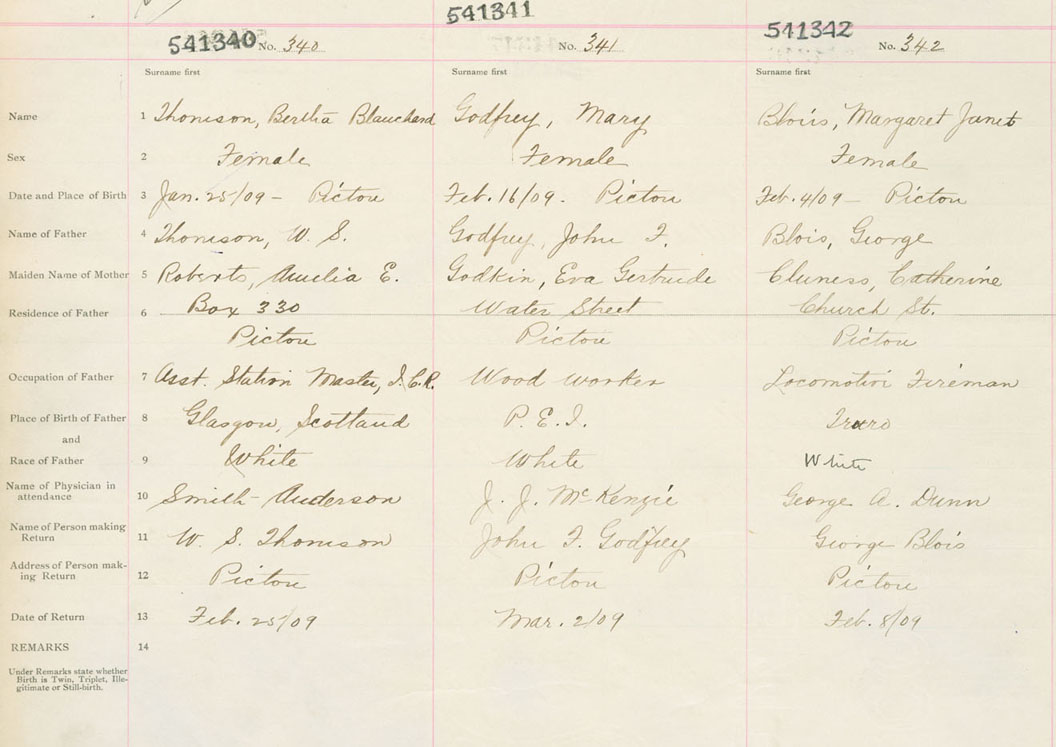 541340 No. 340 541341 No. 341 541342 No. 342
Surname first Surname first Surname first
Name 1 Thomson, Bertha Blanchard Godfrey, Mary Blois, Margaret Janet
Sex 2 Female Female Female
Date and Place of Birth 3 Jan. 25/09 - Pictou Feb. 16/09. Pictou Feb. 4/09 - Pictou
Name of Father 4 Thomson, W. S. Godfrey, John F. Blois, George
Maiden Name of Mother 5 Roberts, Amelia E. Godkin, Eva Gertrude Cluness, Catherine
Residence of Father 6 Box 330 Water Street Church St.
Pictou Pictou Pictou
Occupation of Father 7 Asst. Station Master, I.C.R. Wood worker Locomotive Fireman
Place of Birth of Father 8 Glasgow, Scotland P. E. I. Truro
and
Race of Father 9 White White White
Name of Physician in
attendance 10 Smith Anderson J. J. McKenzie George A. Dunn
Name of Person making
Return 11 W. S. Thomson John F. Godfrey George Blois
Address of Person mak-
ing Return 12 Pictou Pictou Pictou
Date of Return 13 Feb. 25/09 Mar. 2/09 Feb. 8/09
REMARKS 14
Under Remarks state whether
Birth is Twin, Triplet, Ille-
gitimate or Still-birth.